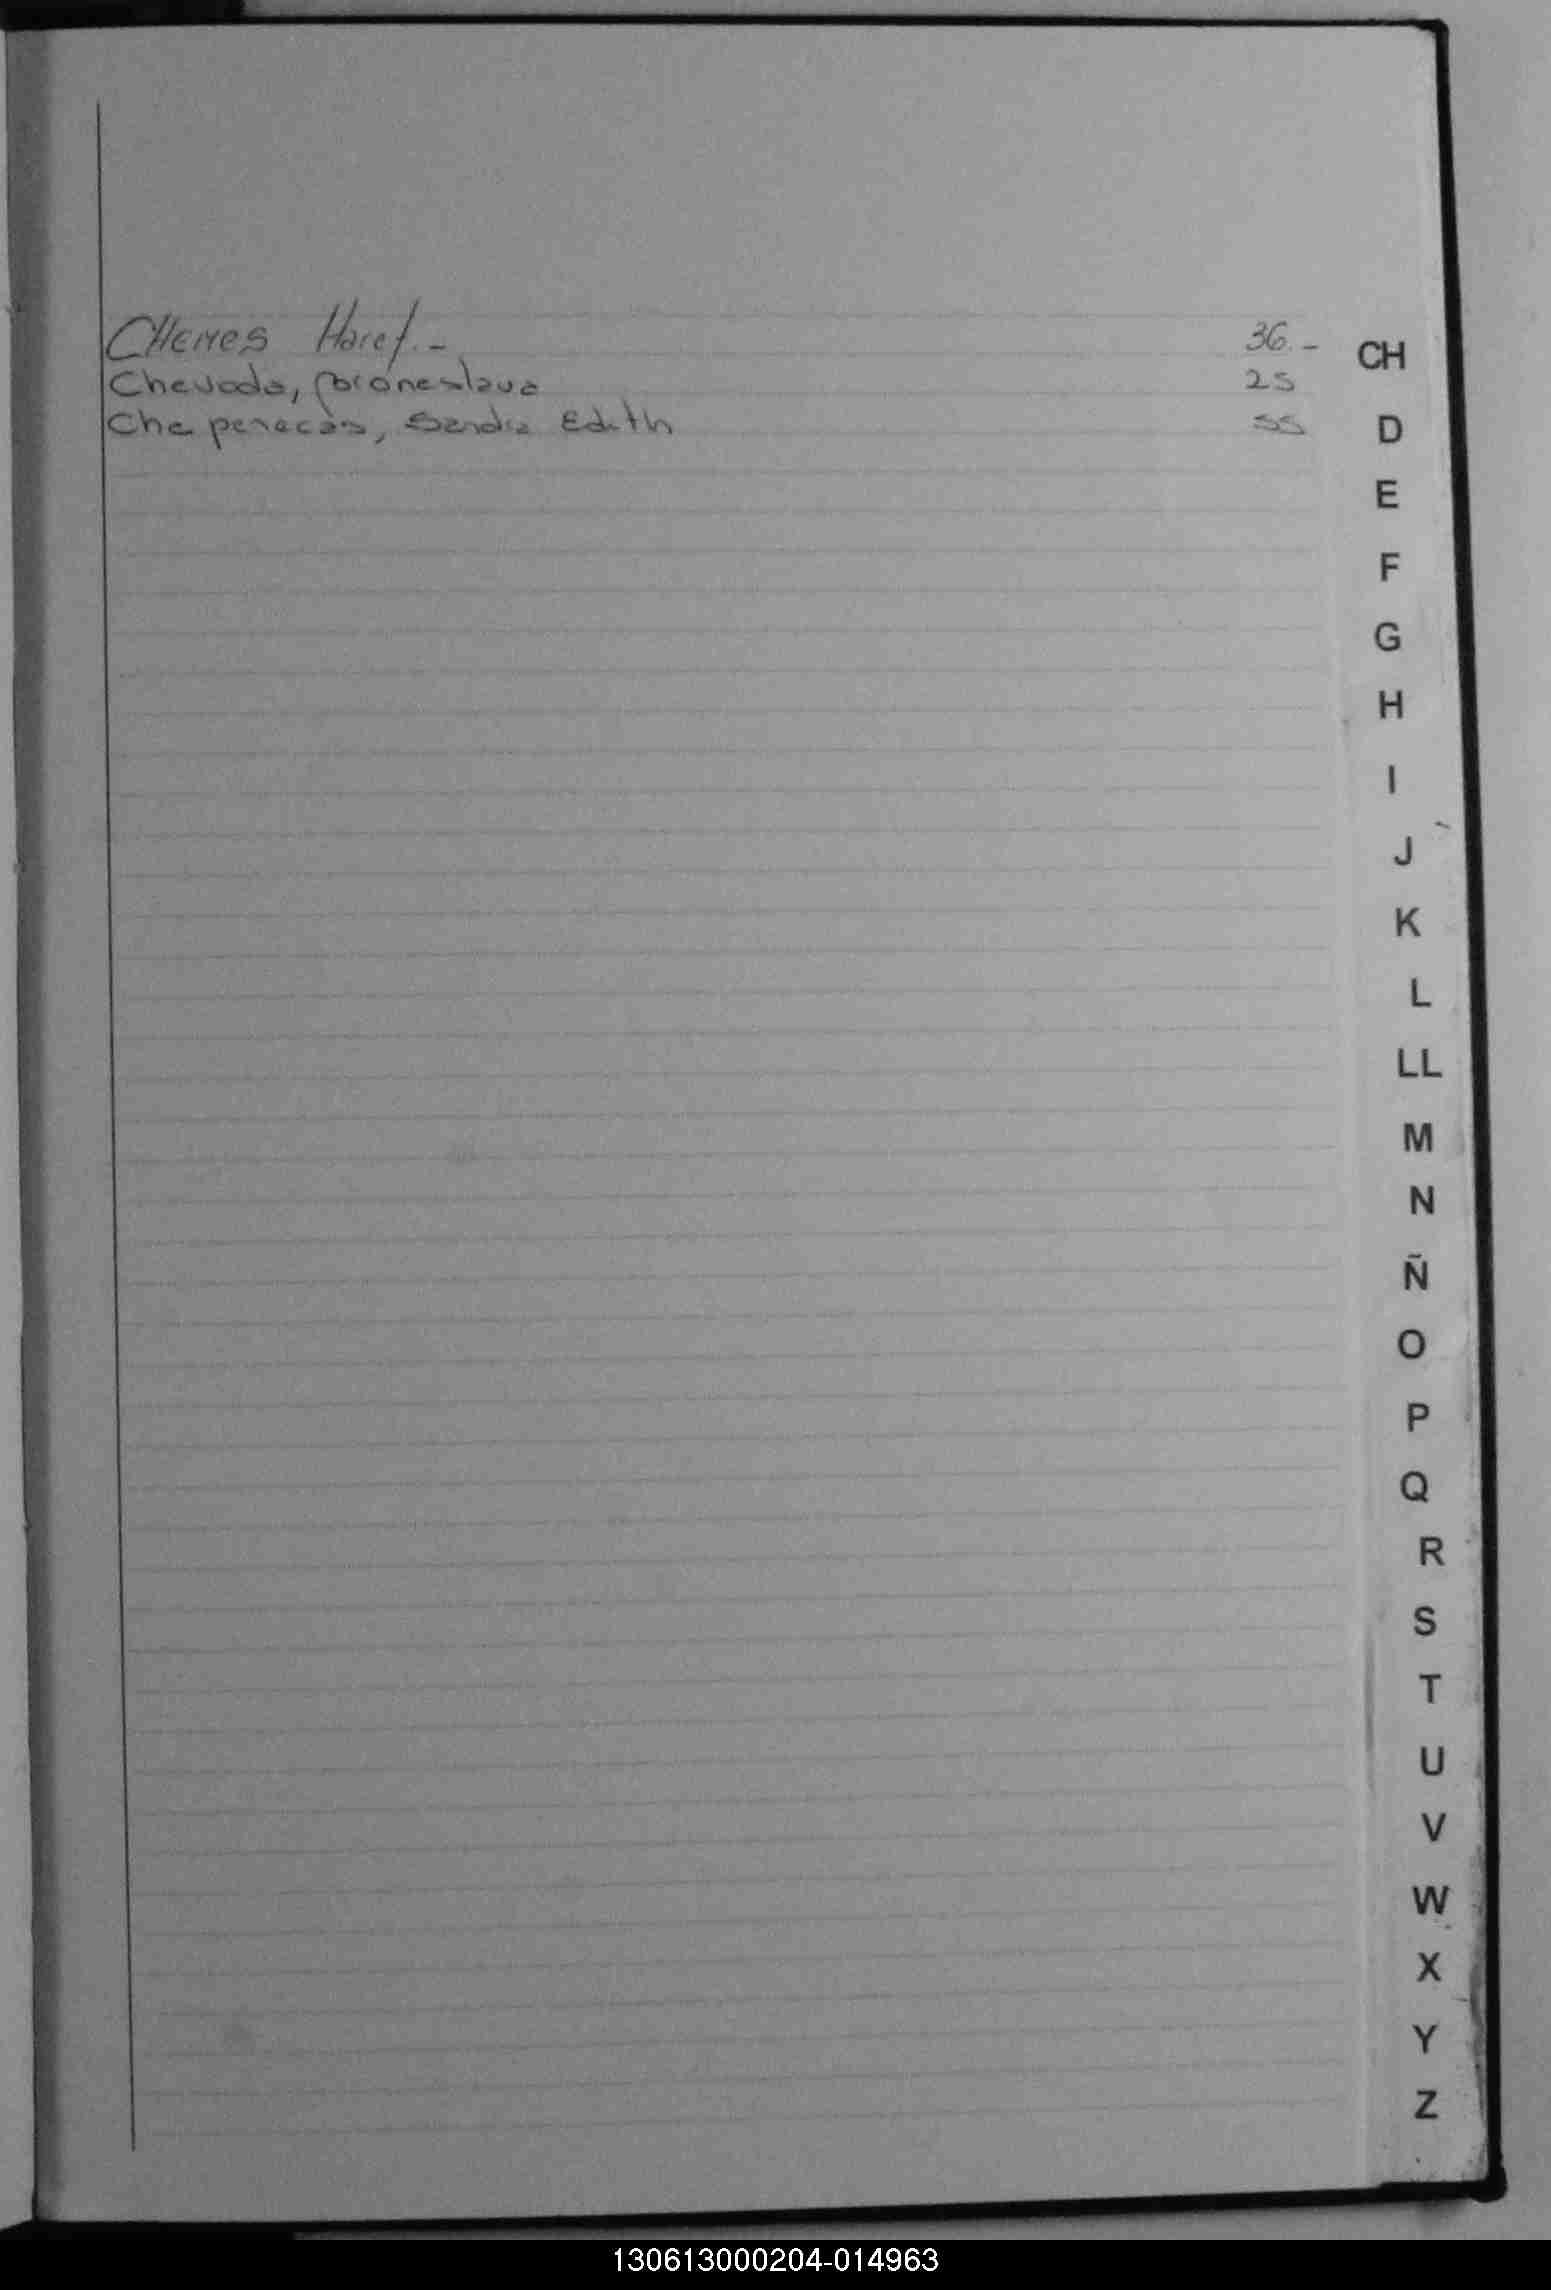 CHEMES Haref.- 36.-
Chevoda, Broneslava 25
Cheperecas, Sandra Edith 55
CH
D
E
F
G
H
I
J
K
L
LL
M
N
Ñ
O
P
Q
R
S
T
U
V
W
X
Y
Z
130613000204-014963